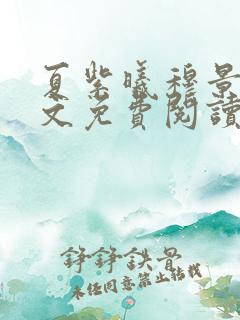 夏紫曦穆景
文免費閱讀
錚錚鉄骨
未经同意禁止转载